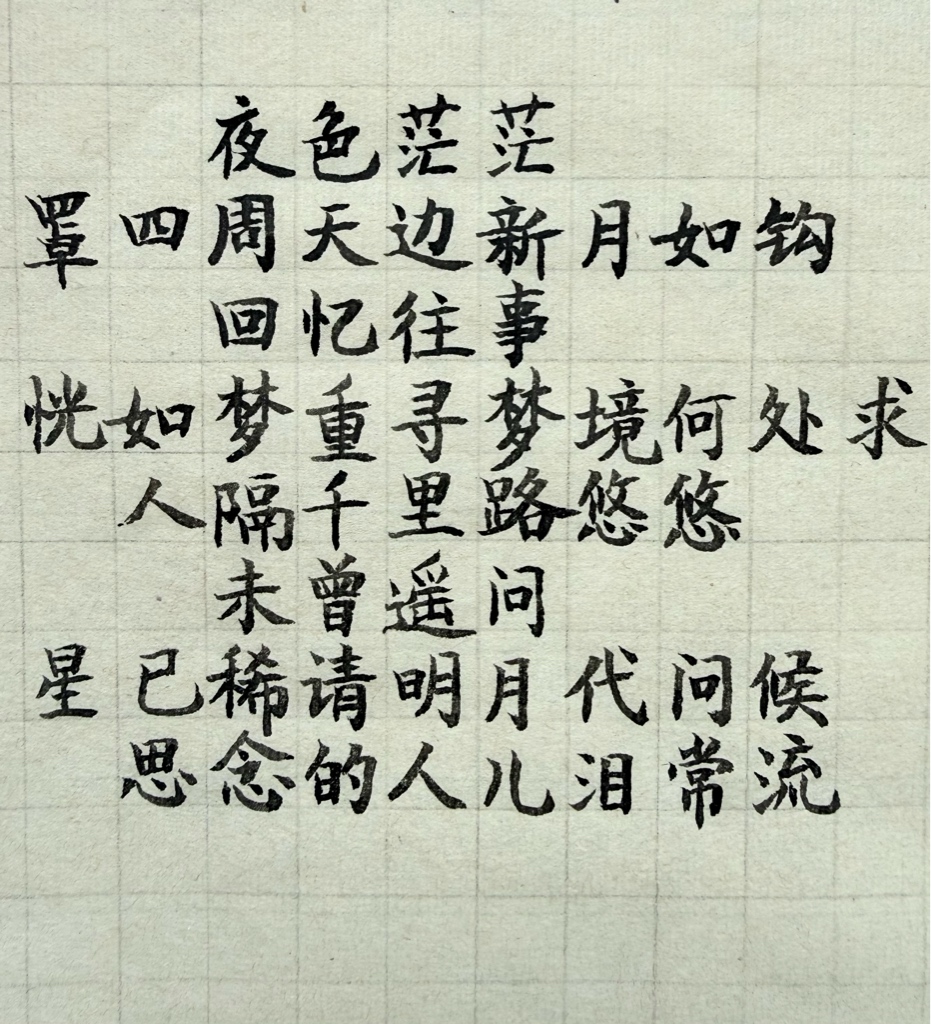 夜色茫茫
罩四周天边新月如钩
回忆往事
恍如梦重寻梦境何处求
人隔千里路悠悠
未曾遥问
星已稀请明月代问候
思念的人儿泪常流